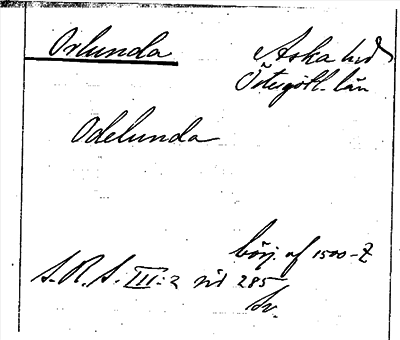 Orlunda
Aska hd
Östergötl. län
Odelunda
börj. af 1500-t
S.R.S. III:2 sid 285
Sv.